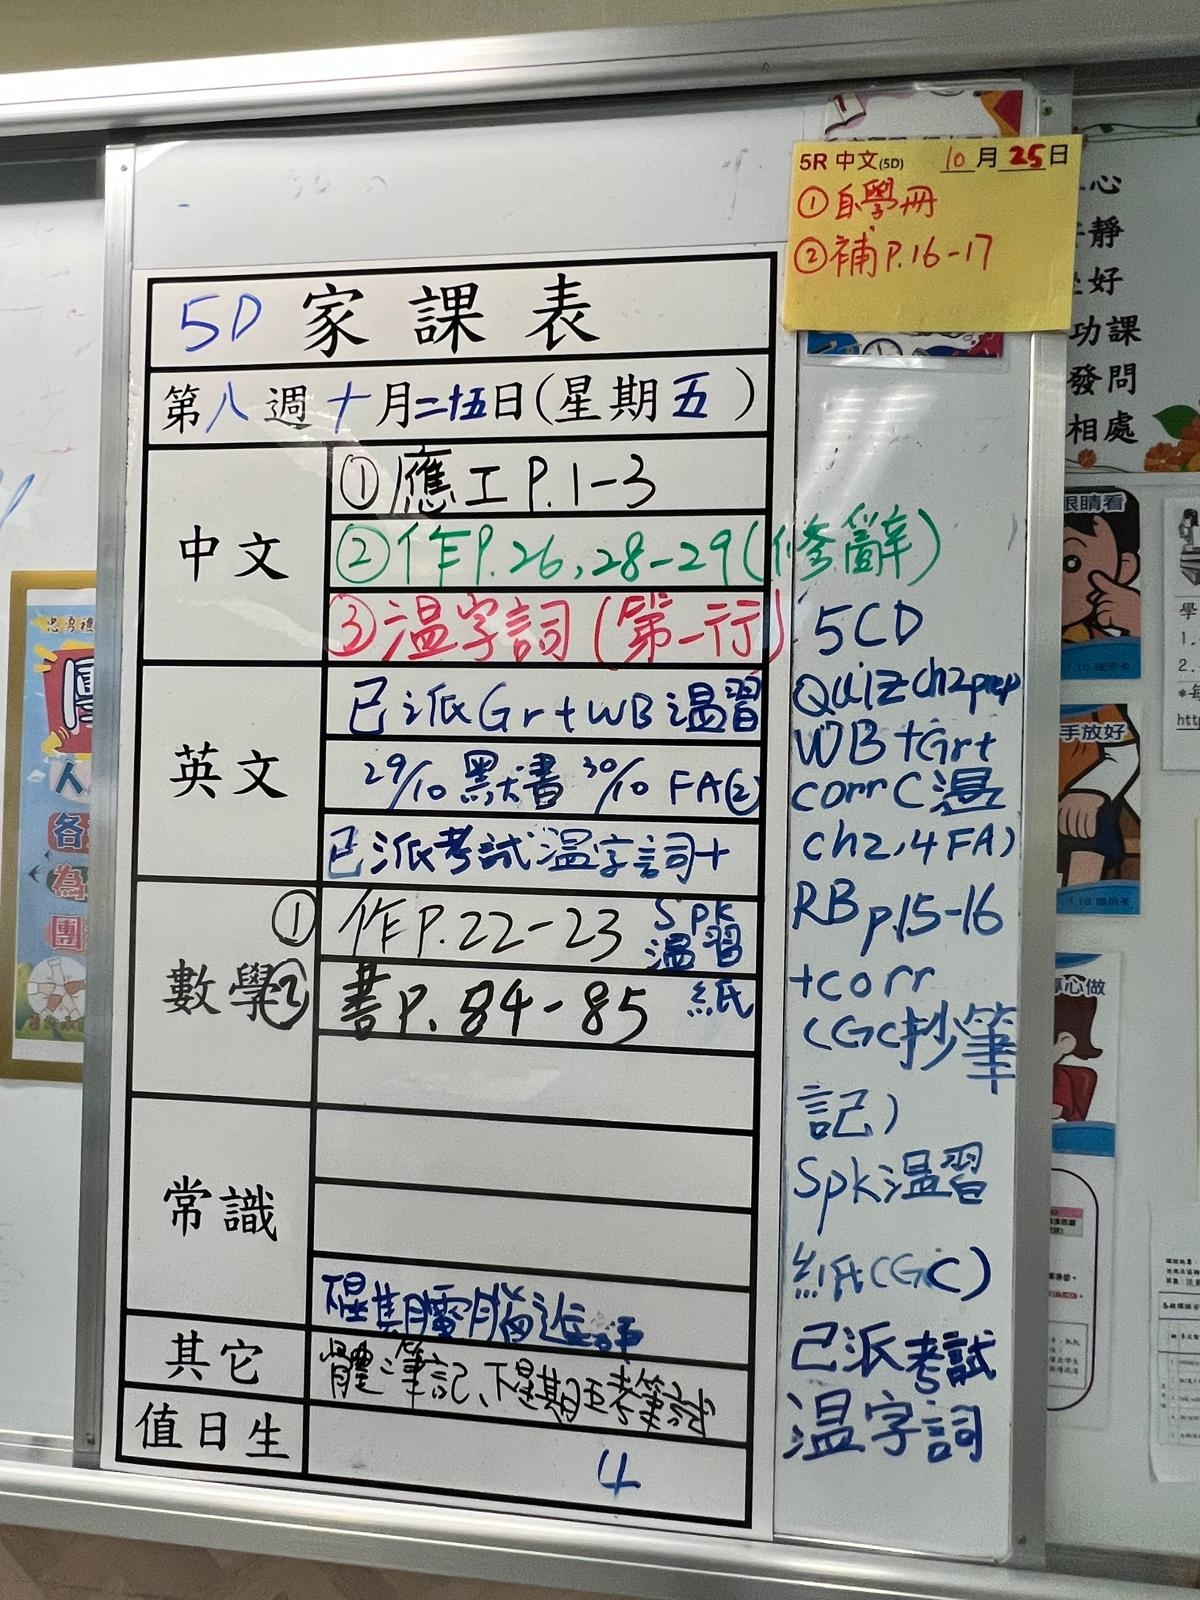 5R 中文(5D) 10月25日
①自學冊
②補P.16-17
5D 家課表
第八週十月二十五日(星期五)
中文
①應工P.1-3
②作P.26,28-29(修辭)
③温字詞(第一行)
英文
已派Gr+WB温習
29/10 默書 30/10 FA(2)
已派考試温字詞+
Spk
温習
紙
數學
① 作P.22-23
② 書P.84-85
常識
下星期
其它
體筆記、下星期五考筆試
值日生
4
5CD
Quiz ch2 prep
WB+Gr+
corr(温
ch2,4 FA)
RB p.15-16
+corr
(GC抄筆
記)
Spk温習
紙(GC)
已派考試
温字詞
心
靜
好
功課
發問
相處
眼睛看
手放好
心做
人
各
為
團